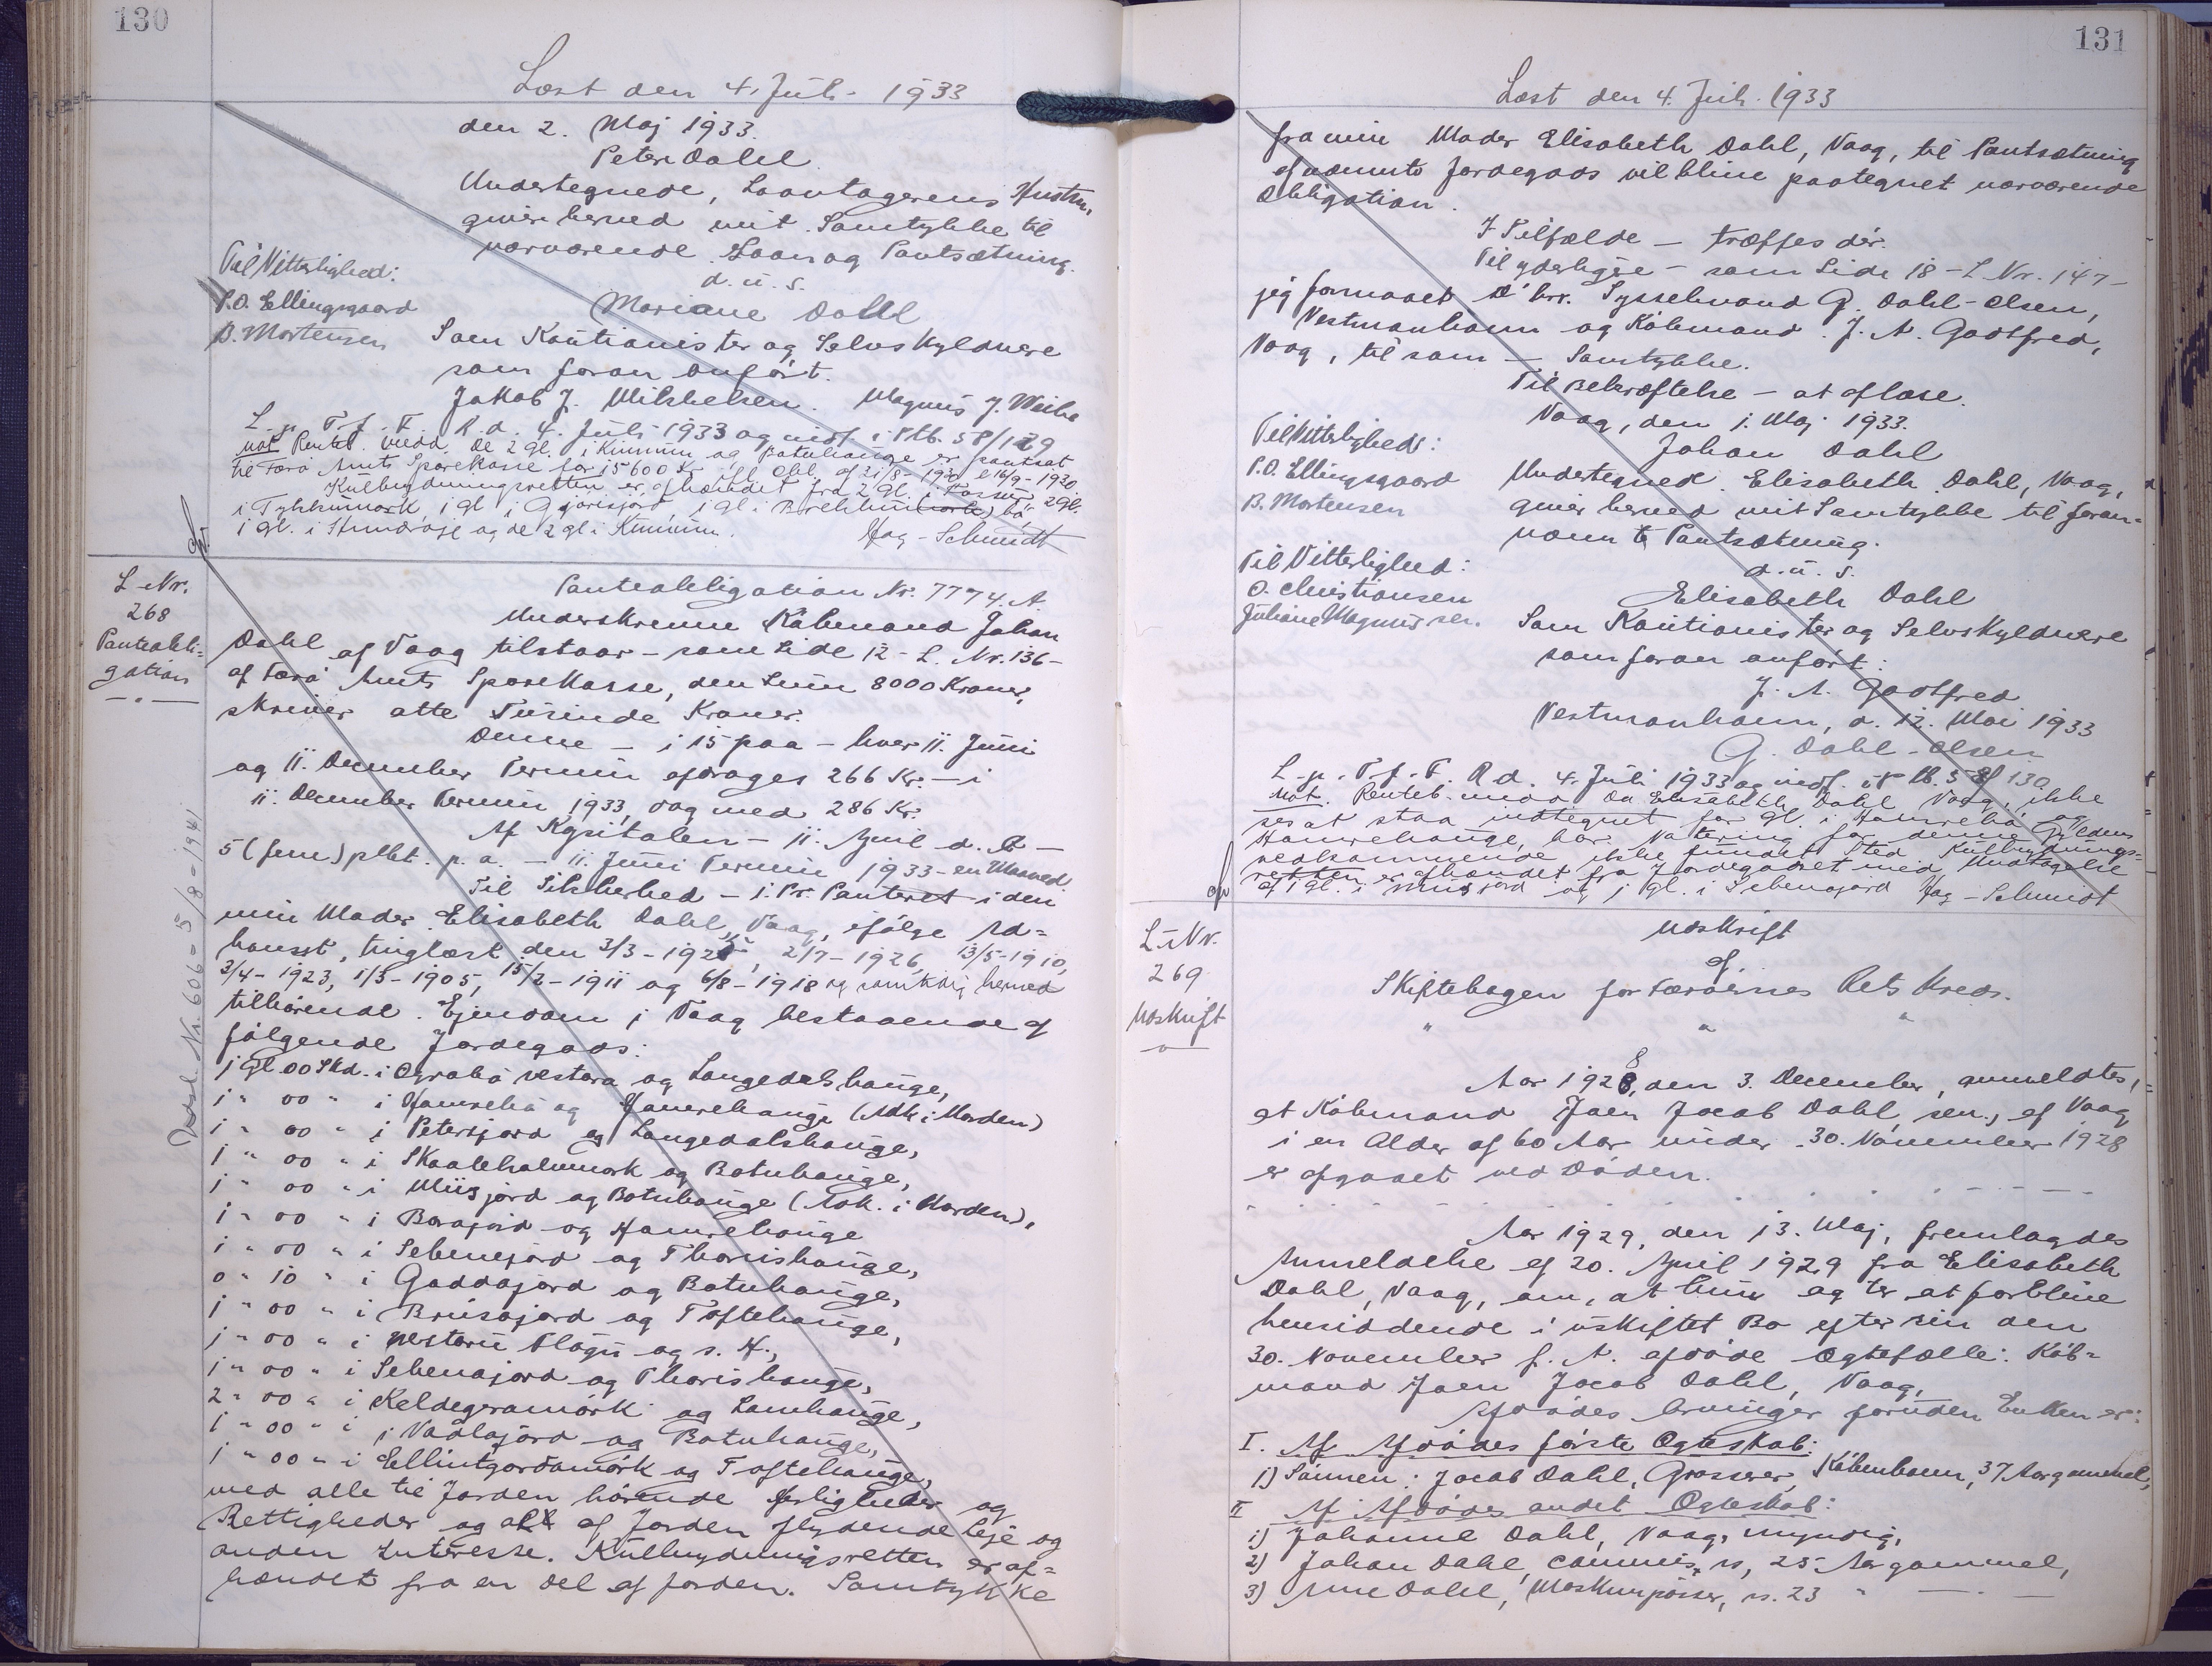 130
Læst den 4. Juli 1933
den 2. Maj 1933.
Peter Dahl.
Undertegnede, Laantagerens Hustru,
giver herved mit Samtykke til
nærværende Laan og Pantsætning.
d. u. s.
Mariane Dahl
Til Vitterlighed:
P.O. Ellingsgaard
B. Mortensen
Som Kautionister og Selvskyldnere
som foran anført.
Jakob J. Mikkelsen. Magnus J. Weihe
L. p. T. f. F. R. d. 4. Juli 1933 og indf. i Ptb. 58/129
Not Renteb. vedd. De 2 gl. i Kimum og Botnhauge er pantsat
til Færø Amts Sparekasse for 15600 Kr. ifl. Obl. af 21/8-1920 l 16/9-1920
Kulbrydningsretten er afhændet fra 2 gl. i 2 gl.
i 1 gl. i 1 gl. i
1 gl. i og de 2 gl. i Kimum. Hag-Schmidt
L-Nr.
268
Panteobli-
gation
Panteobligation Nr. 7774. A.
Underskrevne Købmand Johan
Dahl af Vaag tilstaar - som Side 12 - L. Nr. 136 -
af Færø Amts Sparekasse, den Sum 8000 Kroner,
skriver otte Tusinde Kroner.
Denne - i 15 paa - hver 11. Juni
og 11. December Termin afdrages 266 Kr. - i
11. December Termin 1933, dog med 286 Kr.
Af Kapitalen - 11. April d. A -
5 (fem) pCt. p. a. - 11. Juni Termin 1933 - en Maaned.
Til Sikkerhed - 1. Pr. Panteret i den
min Moder Elisabeth Dahl, Vaag, ifølge Ad-
komst, tinglæst den 3/3-1925, 2/7-1926, 13/5-1910,
3/4-1923, 1/5-1905, 15/2-1911 og 6/8-1918 og samtidig herved
tilhørende Ejendom i Vaag bestaaende af
følgende Jordegods:
1 Gl. 00 Skd. i Ograbø vestara og Langedalshauge,
1 " 00 " i Hamrebø og Hamrehauge (Adk. i Orden)
1 " 00 " i Petersjord og Langedalshauge,
1 " 00 " i Skaaleholumørk og Botnhauge,
1 " 00 " i Miisjørd og Botnhauge (Adk. i Orden),
1 " 00 " i Borajord og Hamrehauge
1 " 00 " i Sebenejørd og Thorishauge,
0 " 10 " i Gaddajørd og Botnhauge,
1 " 00 " i Brúsajord og Toftehauge,
1 " 00 " i Vestaru Fløgu og s. H.,
1 " 00 " i Sebenajord og Thorishauge,
2 " 00 " i Keldegramørk og Lamhauge,
1 " 00 " i Nødlajørd og Botnhauge,
1 " 00 " i Ellintgardamørk og Toftehauge,
med alle til Jorden hørende Herligheder og
Rettigheder og alt af Jorden flydende Leje og
anden Interesse. Kulbrydningsretten er af-
hændet fra en Del af Jorden. Samtykke
Udsl. Nr. 606 - 5/8-1941
131
Læst den 4. Juli 1933
fra min Moder Elisabeth Dahl, Vaag, til Pantsætning
af nævnte Jordegods vil blive paategnet nærværende
Obligation.
I Tilfælde - træffes dér.
Til yderligere - som Side 18 - L Nr. 147 -
jeg formaaet d'hrr. Sysselmand G. Dahl-Olsen,
Vestmanhavn og Købmand J. A. Godtfred,
Vaag, til som - Samtykke.
Til Bekræftelse - at aflæse.
Vaag, den 1. Maj 1933.
Johan Dahl
Til Vitterlighed:
P.O. Ellingsgaard
B. Mortensen
Undertegnede Elisabeth Dahl, Vaag,
giver herved mit Samtykke til foran-
nævnte Pantsætning.
d. u. s.
Elisabeth Dahl
Til Vitterlighed:
O. Christiansen
Juliane Magnussen.
Som Kautionister og Selvskyldnere
som foran anført:
J. A. Godtfred
Vestmanhavn, d. 12. Mai 1933
G. Dahl-Olsen
L. p. T. f. F. R. d. 4. Juli 1933 og indf. i Ptb. 58/130
Not. Renteb. vedd Da Elisabeth Dahl Vaag, ikke
ses at staa indtegnet for Gl. i Hamrebø og
Hamrehauge, har Notering for denne Gyldens
vedkommende ikke fundet Sted Kulbrydnings-
retten er afhændet fra Jordegodset med Undtagelse
af 1 gl. i Miisjord og 1 gl. i Sebenajord Hag-Schmidt
L-Nr.
269
Udskrift
Udskrift
af
Skiftebogen for Færøernes Rets Kreds.
" " "
Aar 1928, den 3. December, anmeldtes,
at Købmand Joen Jacob Dahl sen., af Vaag
i en Alder af 60 Aar under 30. November 1928
er afgaaet ved Døden.
Aar 1929, den 13. Maj, fremlagdes
Anmeldelse af 20. April 1929 fra Elisabeth
Dahl, Vaag, om, at hun agter at forblive
hensiddende i uskiftet Bo efter sin den
30. November f. A. afdøde Ægtefælle: Køb-
mand Joen Jacob Dahl, Vaag,
Afdødes Arvinger foruden Enken er:
I. Af Afdødes første Ægteskab:
1) Sønnen: Jacob Dahl, Grosserer, København, 37 Aar gammel,
II Af Afdødes andet Ægteskab:
1) Johanne Dahl, Vaag, myndig,
2) Johan Dahl, Commis, s, 25 Aar gammel,
3) Arne Dahl, Maskinpasser, s. 23 " —